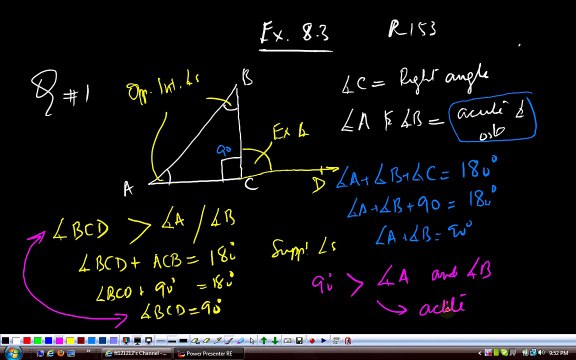 Ex. 8.3 R153
Q #1
Opp. Int. ∠s
B
90
Ex ∠
A
C
D
∠C = Right angle
∠A & ∠B = acute ∠
∠A + ∠B + ∠C = 180°
∠A + ∠B + 90 = 180°
∠A + ∠B = 90°
∠BCD > ∠A / ∠B
∠BCD + ACB = 180°
Suppl ∠s
∠BCD + 90° = 180°
∠BCD = 90°
90° > ∠A and ∠B
→ acute
start
RSZ1212's Channel - ...
Power Presenter RE
9:52 PM